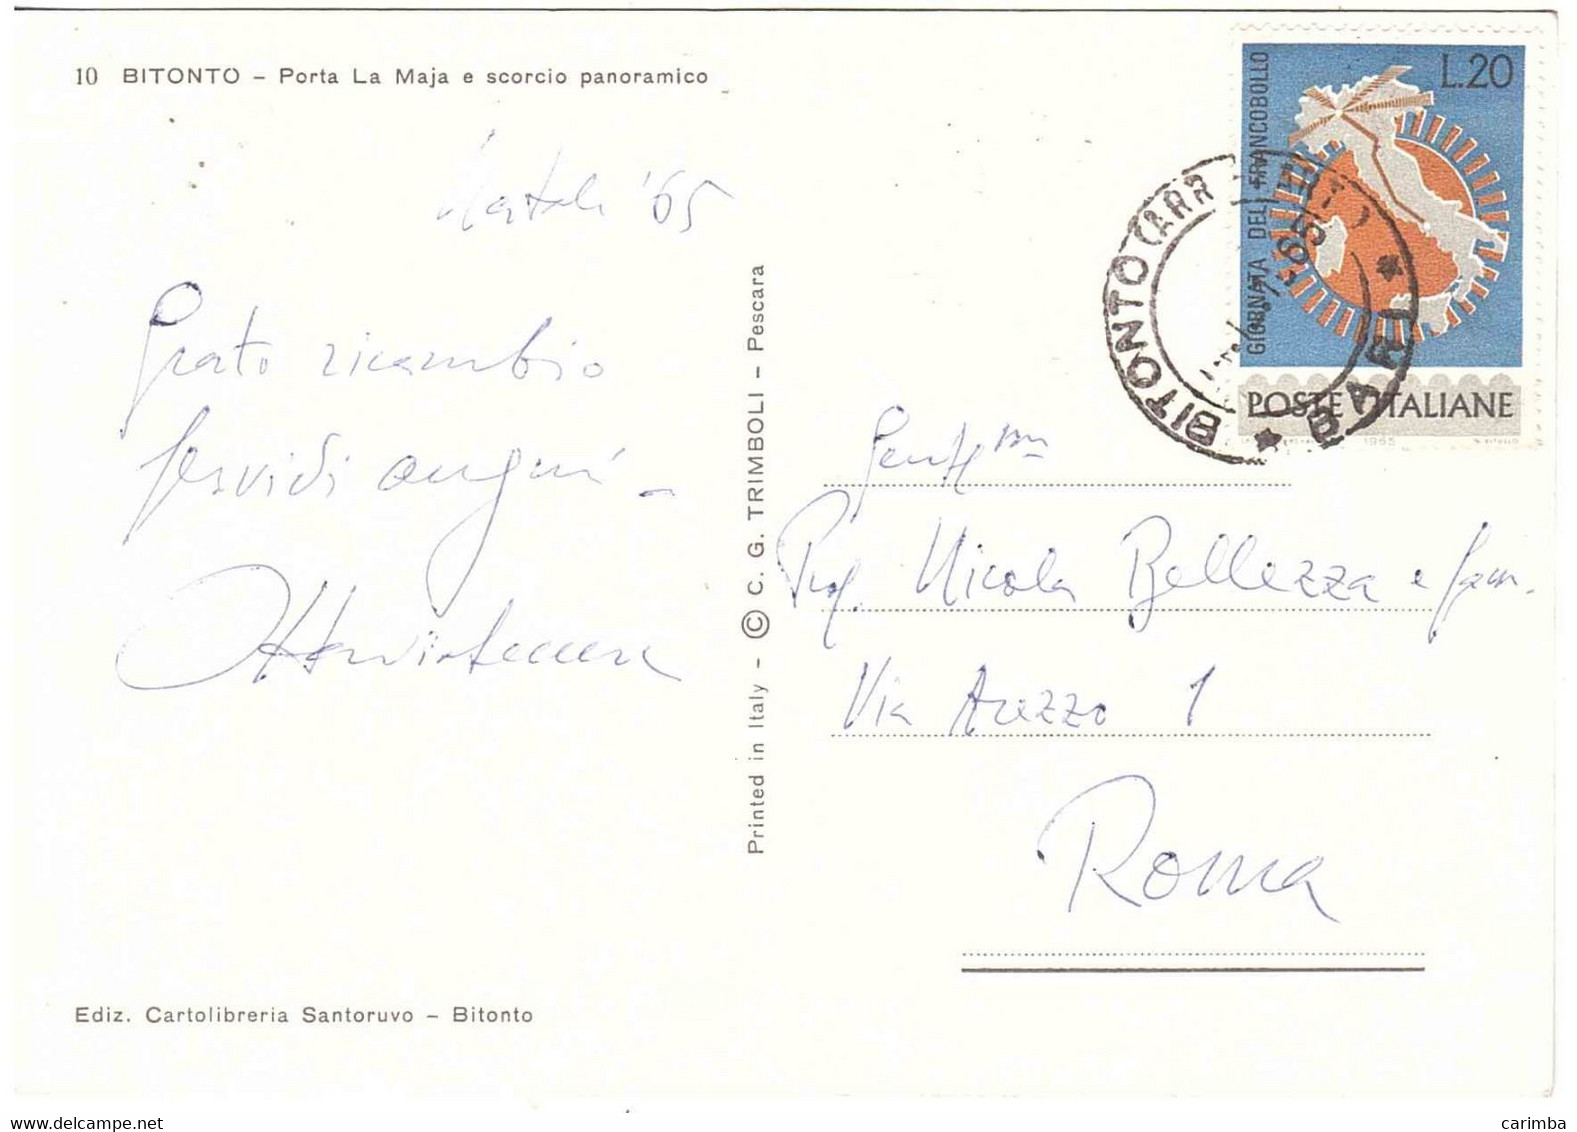 10 BITONTO – Porta La Maja e scorcio panoramico
Natale '65
Grato ricambio
fervidi auguri –
Ediz. Cartolibreria Santoruvo – Bitonto
Printed in Italy – © C. G. TRIMBOLI – Pescara
L.20
GIORNATA DEL FRANCOBOLLO
POSTE ITALIANE
1965
BITONTO (ARR
* BARI *
Gent.mi
Prof. Nicola Bellezza e fam.
Via Arezzo 1
Roma
carimba